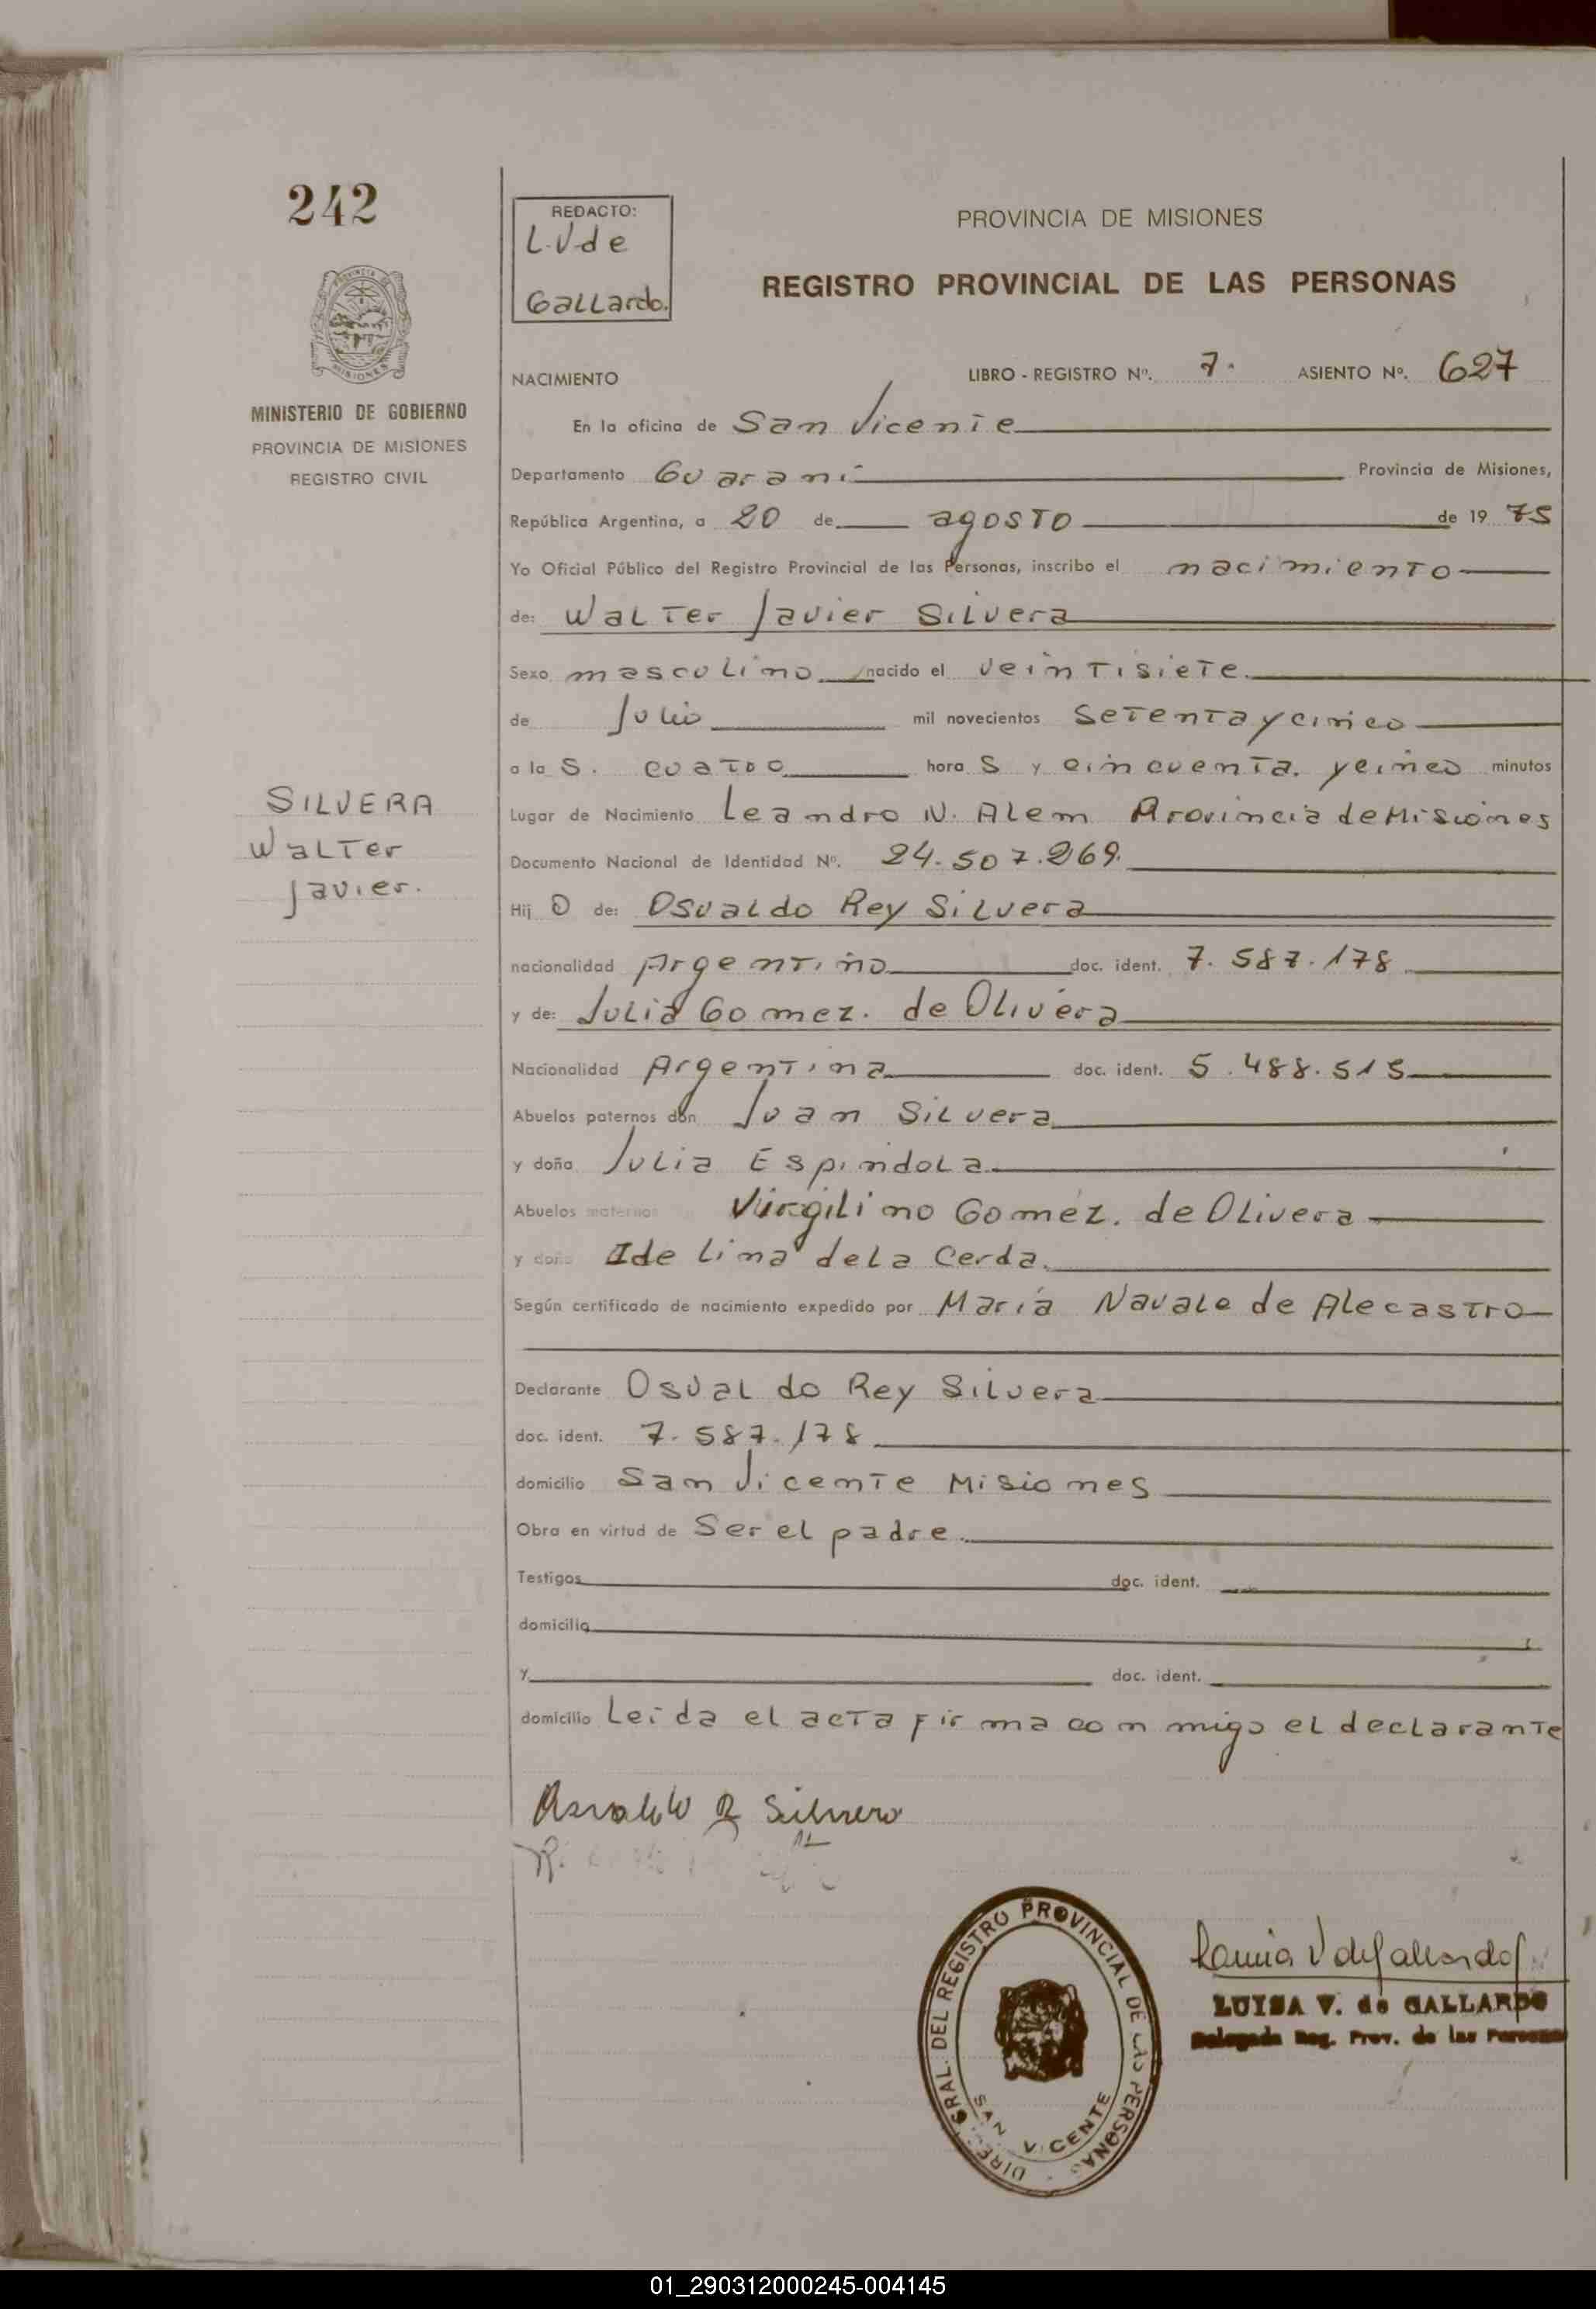 242
REDACTO:
L.V de
Gallardo.
PROVINCIA DE MISIONES
REGISTRO PROVINCIAL DE LAS PERSONAS
PROVINCIA DE MISIONES
MINISTERIO DE GOBIERNO
PROVINCIA DE MISIONES
REGISTRO CIVIL
NACIMIENTO LIBRO - REGISTRO Nº. 7. ASIENTO Nº. 627
En la oficina de San Vicente
Departamento Guaraní Provincia de Misiones,
República Argentina, a 20 de agosto de 19 75
Yo Oficial Público del Registro Provincial de las Personas, inscribo el nacimiento
de: Walter Javier Silvera
Sexo masculino nacido el veintisiete.
de Julio mil novecientos setenta y cinco
a la s. cuatro hora s y cincuenta. y cinco minutos
SILVERA
Walter
Javier.
Lugar de Nacimiento Leandro N. Alem Provincia de Misiones
Documento Nacional de Identidad Nº. 24.507.269.
Hij o de: Osvaldo Rey Silvera
nacionalidad Argentino doc. ident. 7.587.178
y de: Julia Gomez. de Olivera
Nacionalidad Argentina doc. ident. 5.488.515
Abuelos paternos don Juan Silvera
y doña Julia Espindola
Abuelos maternos Virgilino Gomez. de Olivera
y doña Ide lina de la Cerda.
Según certificado de nacimiento expedido por María Navale de Alecastro
Declarante Osvaldo Rey Silvera
doc. ident. 7.587.178
domicilio San Vicente Misiones
Obra en virtud de Ser el padre.
Testigos doc. ident.
domicilio
y doc. ident.
domicilio Leida el acta firma con migo el declarante
Osvaldo R Silvero
DIREC. GRAL. DEL REGISTRO PROVINCIAL DE LAS PERSONAS
SAN VICENTE
V de Gallardo
LUISA V. de GALLARDO
Delegada Reg. Prov. de las Personas
01_290312000245-004145